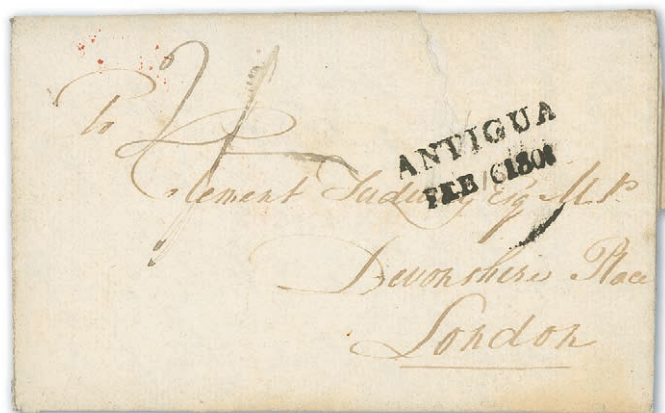 To
ANTIGUA
FEB 16 1801
Clement Tudway Esq M.P.
Devonshire Place
London